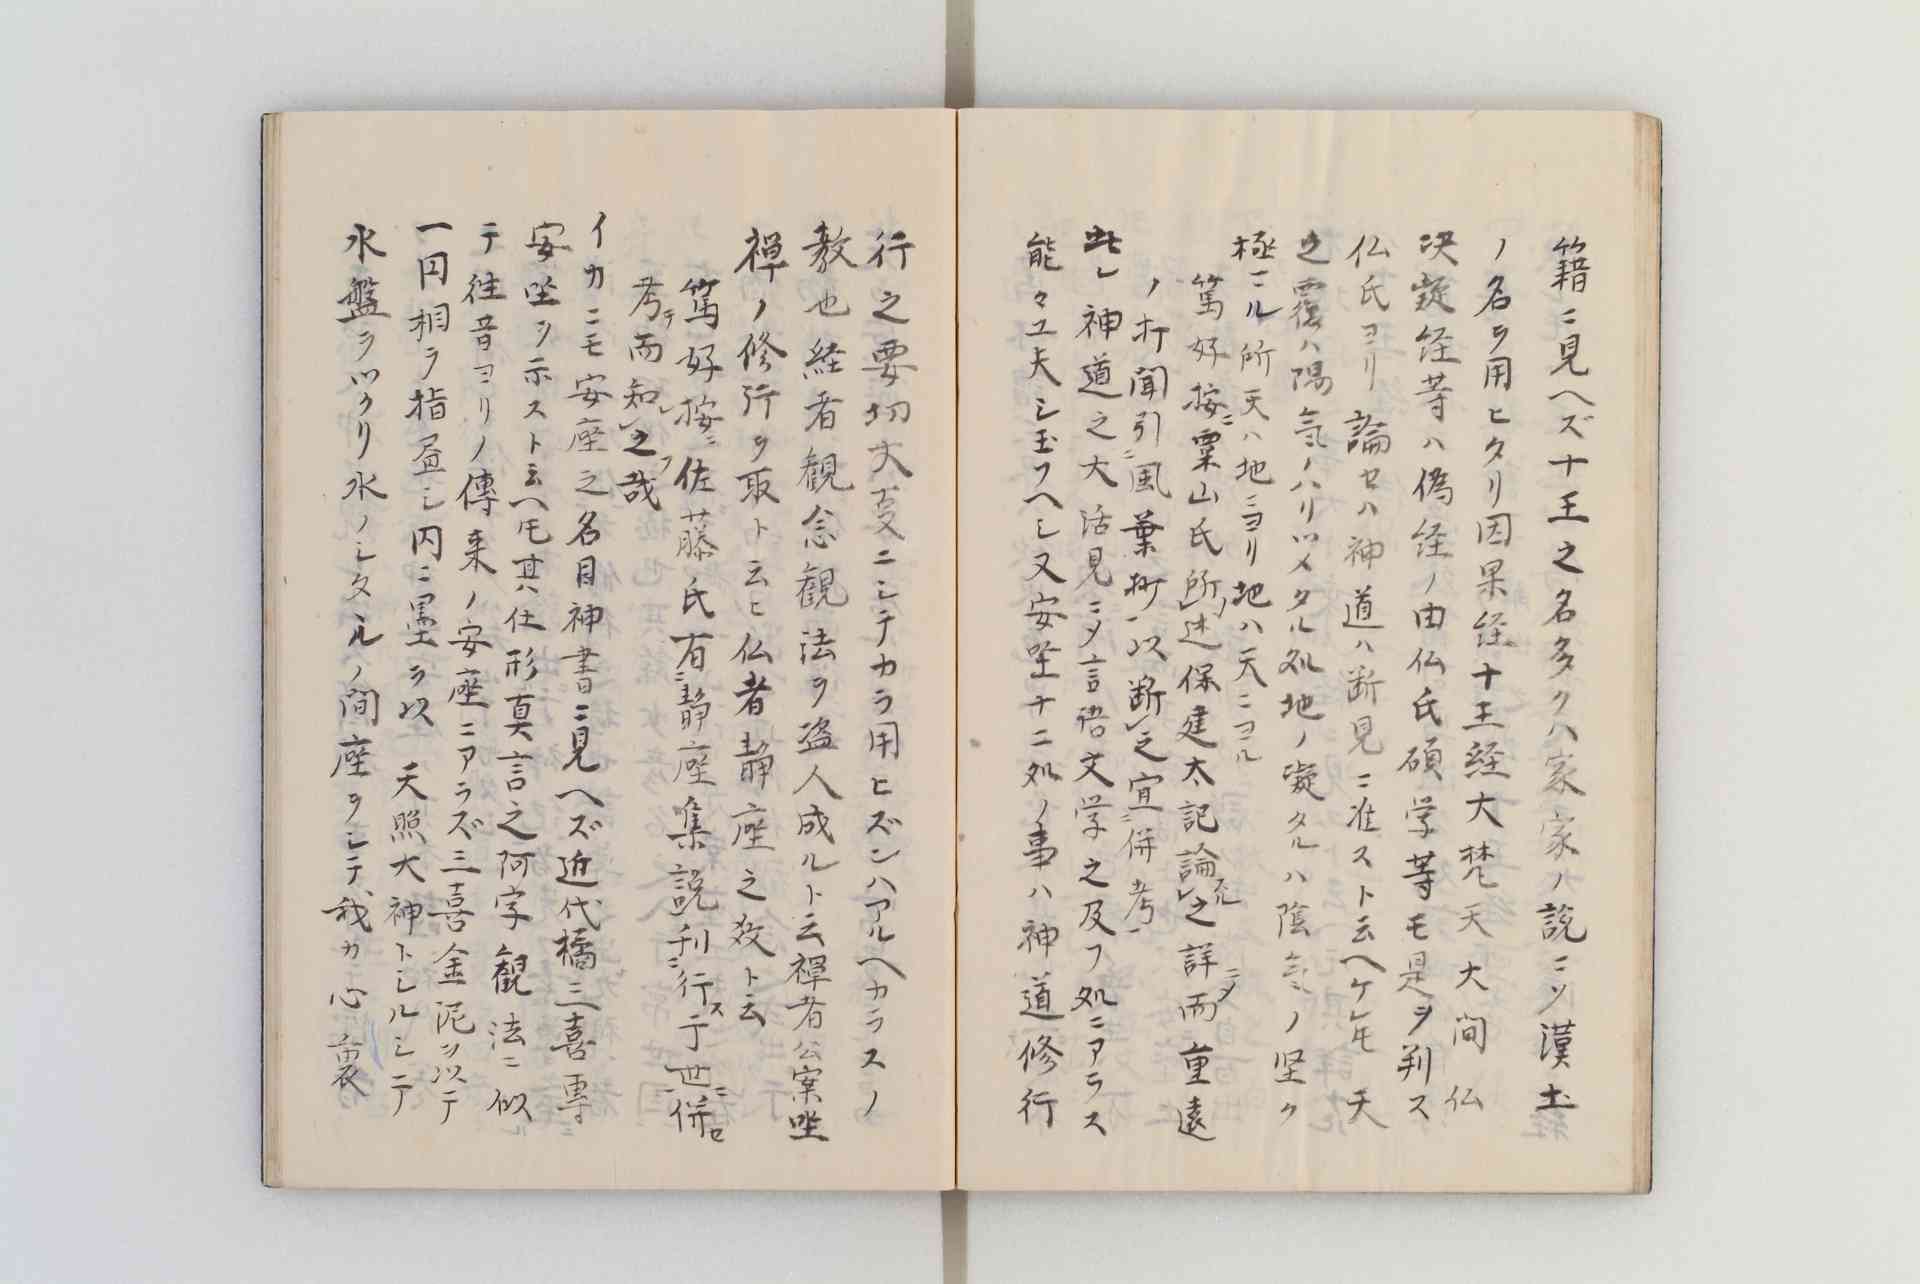 籍ニ見ヘズ十王之名多クハ家家ノ説ニソ漢土
ノ名ヲ用ヒタリ因果経十王経大梵天大間仏
决疑経等ハ偽経ノ由仏氏碩学等モ是ヲ判ス
仏氏ヨリ論セハ神道ハ断見ニ准スト云ヘケレ𪜈天
之覆ハ陽氣ノハリツメタル処地ノ凝タルハ陰氣ノ坚ク
極ル所天ハ地ニヨリ地ハ天ニヨル
篤好按ニ粟山氏所ノ述保建太記論之詳ニ而重遠
ノ打聞引ニ風葉折以断之宜ニ併考
此レ神道之大活見ニ〆言語文学之及フ処ニアラス
能々工夫シ玉フヘシ又安坐十二処ノ事ハ神道修行
行之要切大亊ニシテカラ用ヒズンハアルヘカラスノ
教也経者観念観法ヲ盗人成ルト云禪者公案坐
禪ノ修行ヲ取ト云ヒ仏者静座之教ト云
篤好按ニ佐藤氏有ニ静座集説刊ニ行ス于世ニ併セ
考テ而知之哉
イカニモ安座之名目神書ニ見ヘズ近代橘三喜専
安坐ヲ示スト云ヘ𪜈其ハ仕形真言之阿字観法ニ似
テ徃昔ヨリノ傳来ノ安座ニアラズ三喜金泥ヲ以テ
一円相ヲ指画シ円ニ墨ヲ以　天照大神トシルシテ
水盤ヲツクリ水ノシタルノ間座ヲシテ我カ心裏